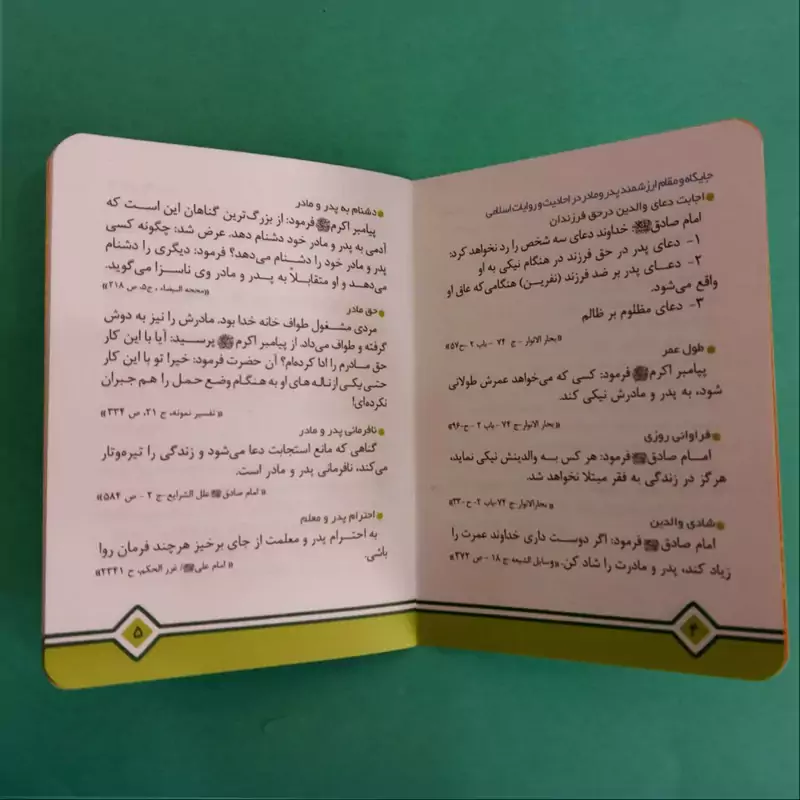 جایگاه و مقام ارزشمند پدر و مادر در احادیث و روایات اسلامی
اجابت دعای والدین در حق فرزندان
امام صادق: خداوند دعای سه شخص را رد نخواهد کرد:
۱- دعای پدر در حق فرزند در هنگام نیکی به او
۲- دعـای پدر بر ضد فرزند (نفرین) هنگامی‌که عاق او
واقع می‌شود.
۳- دعای مظلوم بر ظالم
«بحار الانوار - ج ۷۴ - باب ۲ - ح۵۷»
طول عمر
پیامبر اکرمﷺ فرمود: کسی که می‌خواهد عمرش طولانی
شود، به پدر و مادرش نیکی کند.
«بحار الانوار - ج ۷۴ - باب ۲ - ح-۹۶»
فراوانی روزی
امـام صادق فرمود: هر کس به والدینش نیکی نماید،
هرگز در زندگی به فقر مبتلا نخواهد شد.
«بحارالانوار-ج ۷۴-باب ۲-ح-۳۳»
شادی والدین
امام صادق فرمود: اگر دوست داری خداوند عمرت را
زیاد کند، پدر و مادرت را شاد کن. «وسایل الشیعه ج ۱۸ - ص ۳۷۲»
۴
دشنام به پدر و مادر
پیامبر اکرمﷺ فرمود: از بزرگ‌ترین گناهان این است که
آدمی به پدر و مادر خود دشنام دهد. عرض شد: چگونه کسی
پدر و مادر خود را دشنام می‌دهد؟ فرمود: دیگری را دشنام
می‌دهـد و او متقابلاً به پـدر و مادر وی ناسـزا می‌گوید.
«محجه البیضاء ، ج۵، ص ۲۱۸»
حق مادر
مردی مشغول طواف خانه خدا بود. مادرش را نیز به دوش
گرفته و طواف می‌داد. از پیامبر اکرمﷺ پرسید: آیا با این کار
حق مادرم را ادا کرده‌ام؟ آن حضرت فرمود: خیرا تو با این کار
حتـی یکی از ناله های او به هنگام وضع حمل را هـم جبران
نکرده‌ای!
«تفسیر نمونه، ج ۲۱، ص ۳۳۴»
نافرمانی پدر و مادر
گناهی که مانع استجابت دعا می‌شود و زندگی را تیره‌وتار
می‌کند، نافرمانی پدر و مادر است.
« امام صادق علل الشرایع -ج ۲ - ص ۵۸۴»
احترام پدر و معلم
به احتـرام پدر و معلمت از جای برخیز هرچند فرمان روا
باشی.
« امام علی/ غرر الحکم، ح ۲۳۴۱»
۵